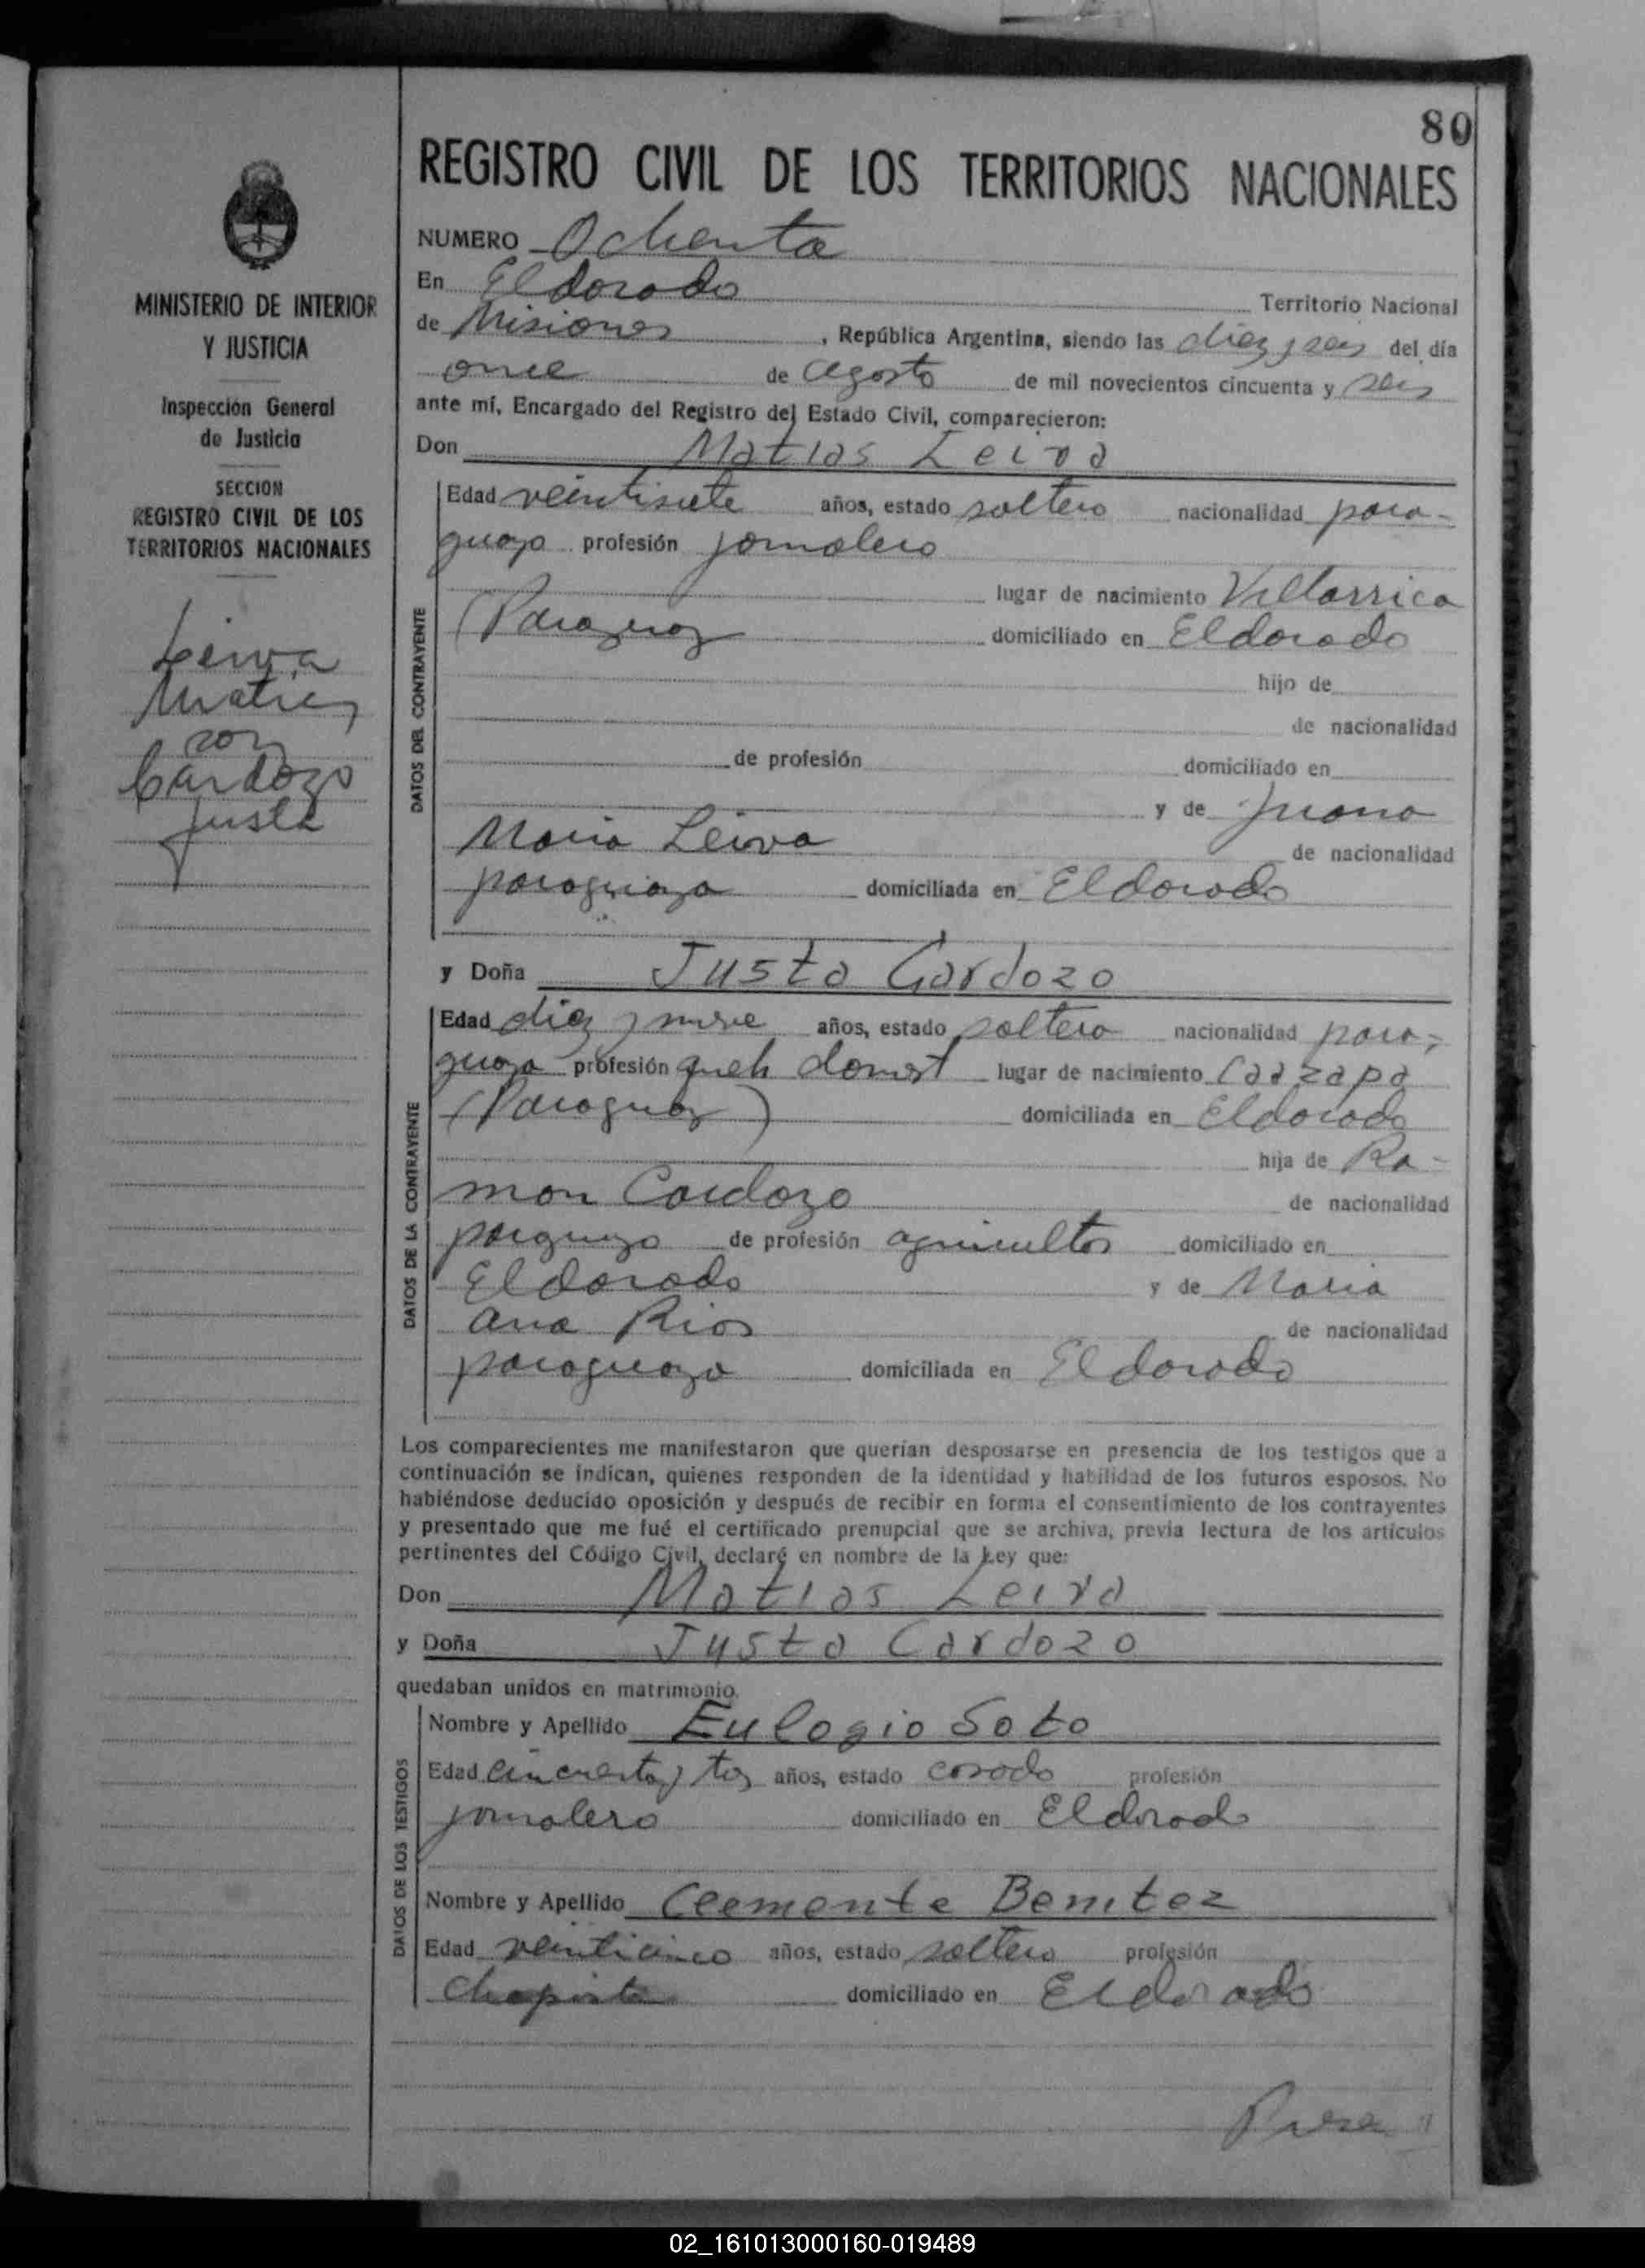 80
REGISTRO CIVIL DE LOS TERRITORIOS NACIONALES
MINISTERIO DE INTERIOR
Y JUSTICIA
Inspección General
de Justicia
SECCION
REGISTRO CIVIL DE LOS
TERRITORIOS NACIONALES
Leiva
Matias
con
Cardozo
Justa
NUMERO Ochenta
En Eldorado Territorio Nacional
de Misiones, República Argentina, siendo las diez y seis del día
once de agosto de mil novecientos cincuenta y seis
ante mí, Encargado del Registro del Estado Civil, comparecieron:
Don Matias Leiva
DATOS DEL CONTRAYENTE
Edad veintisiete años, estado soltero nacionalidad para-
guayo profesión jornalero
lugar de nacimiento Villarrica
(Paraguay domiciliado en Eldorado
hijo de
de nacionalidad
de profesión domiciliado en
y de Juana
Maria Leiva de nacionalidad
paraguaya domiciliada en Eldorado
y Doña Justa Cardozo
DATOS DE LA CONTRAYENTE
Edad diez y nueve años, estado soltera nacionalidad para-
guaya profesión queh domest lugar de nacimiento Caazapa
(Paraguay) domiciliada en Eldorado
hija de Ra-
mon Cardozo de nacionalidad
parguayo de profesión agricultor domiciliado en
Eldorado y de Maria
Ana Rios de nacionalidad
paraguaya domiciliada en Eldorado
Los comparecientes me manifestaron que querían desposarse en presencia de los testigos que a
continuación se indican, quienes responden de la identidad y habilidad de los futuros esposos. No
habiéndose deducido oposición y después de recibir en forma el consentimiento de los contrayentes
y presentado que me fué el certificado prenupcial que se archiva, previa lectura de los artículos
pertinentes del Código Civil, declaré en nombre de la Ley que:
Don Matias Leiva
y Doña Justa Cardozo
quedaban unidos en matrimonio.
DATOS DE LOS TESTIGOS
Nombre y Apellido Eulogio Soto
Edad cincuenta y años, estado casado profesión
jornalero domiciliado en Eldorado
Nombre y Apellido Clemente Benitez
Edad veinticinco años, estado soltero profesión
Chapista domiciliado en Eldorado
02_161013000160-019489